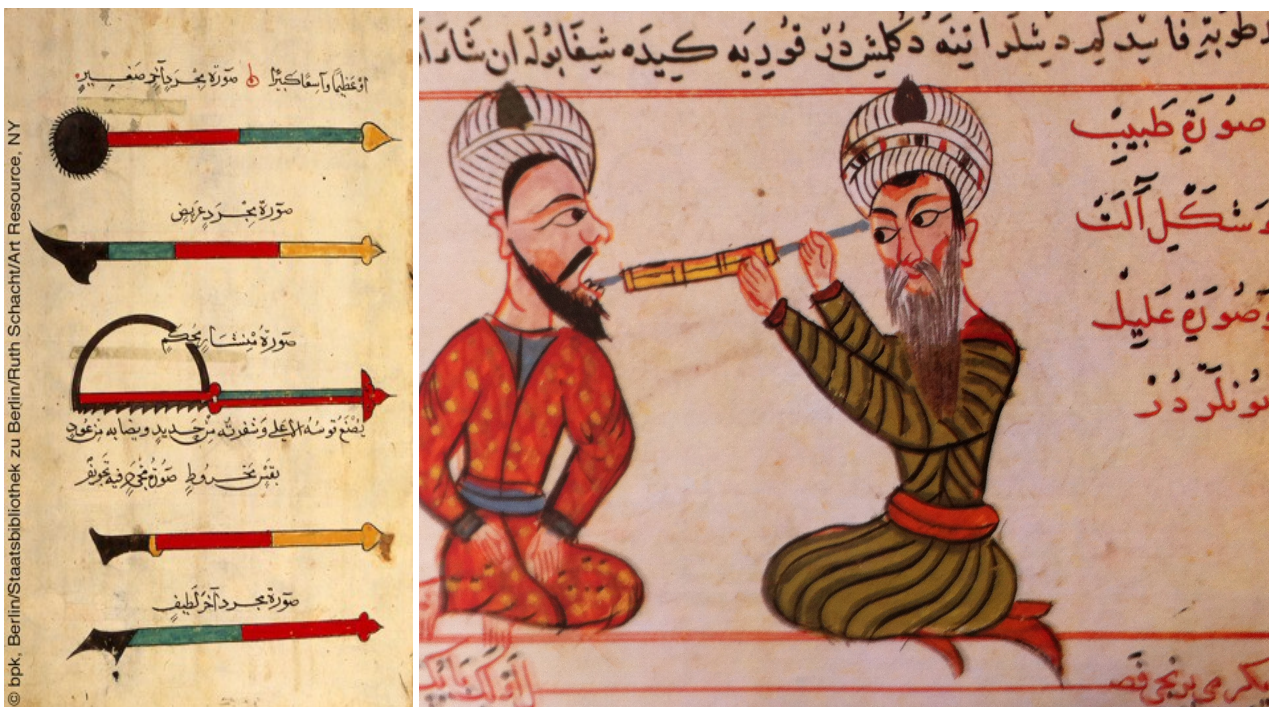 © bpk, Berlin/Staatsbibliothek zu Berlin/Ruth Schacht/Art Resource, NY
اَوْ عَظِيمًا وَاسِعًا كَبِيرًا صُورَة مِجْرَد آخَر صَغِير
صُورَة مِجْرَد عَرِيض
صُورَة مِنْشَار مُحْكَم
يُصْنَعُ قَوسُهُ الاعلى وَشَفرتُه مِنْ حَدِيد ونِصَابه مِن عُود
بَقْس مَخْرُوط صُورَة فيه تَجويف
صُورَة مِجْرَد آخَر لَطِيف
فَاسِد كِم دِشْلَر دُرْ قُودِيَه كِيدَه شِفَا بُولَه اِن شَاءَ
صُورَةِ طَبِيبْ
وَشَكْلِ آلَتْ
وَصُورَةِ عَلِيلْ
بُونْلَرْدُرْ